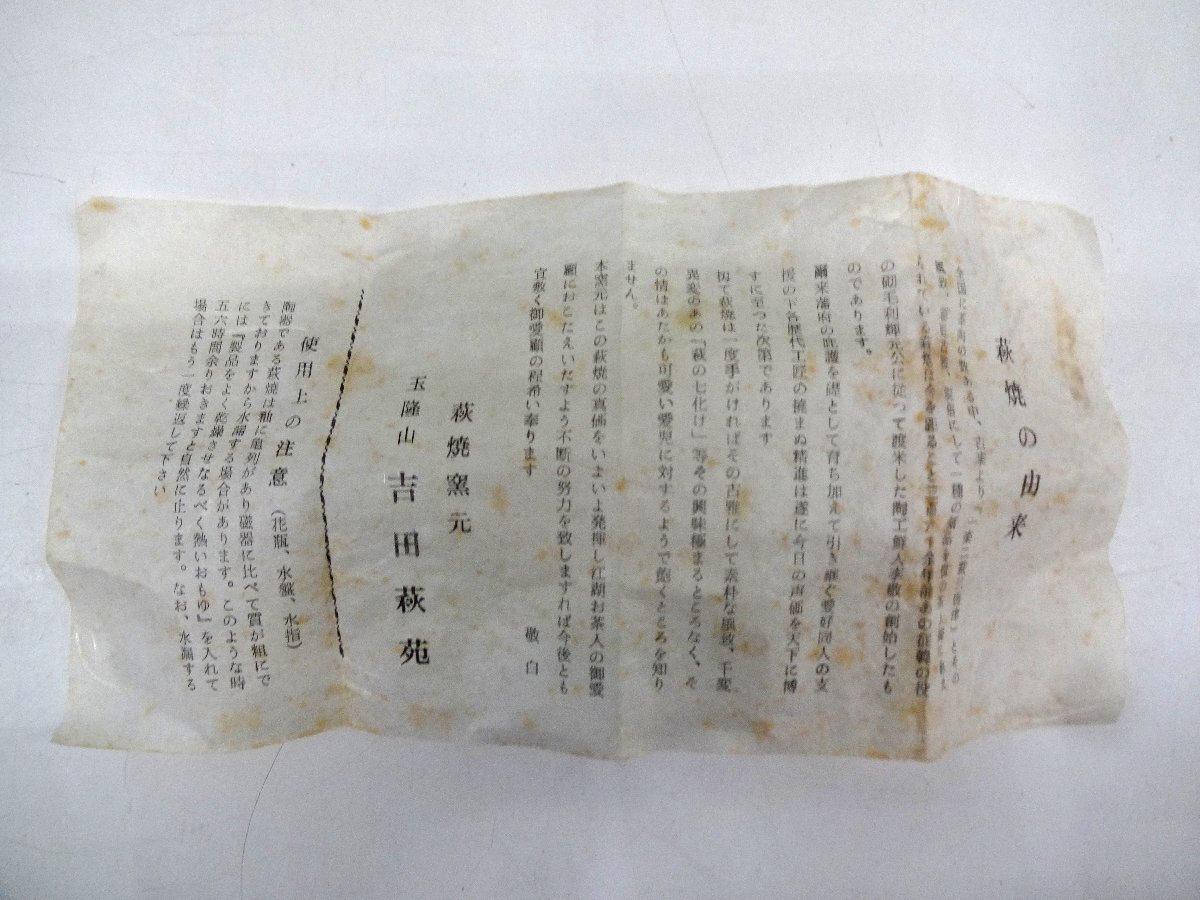 萩焼の由来
全国に著陶の数ある中、古来より『一楽二萩三唐津』と
の砌毛利輝元公に従つて渡米した陶工鮮人李敬の創始したも
のであります。
爾来藩府の庇護を礎として育ち加えて引き継ぐ愛好同人の支
援の下各歴代工匠の撓まぬ精進は遂に今日の声価を天下に博
すに至つた次第であります
扨て萩焼は一度手がければその古雅にして素朴な風致、千変
異変のあの『萩の七化け』等その興味極まるところなく、そ
の情はあたかも可愛い愛児に対するようで飽くところを知り
ません。
本窯元はこの萩焼の真価をいよいよ発揮し江湖お茶人の御愛
顧におこたえいたすよう不断の努力を致しますれば今後とも
宜敷く御愛顧の程希い奉ります
敬白
萩焼窯元
玉隆山 吉田萩苑
使用上の注意 (花瓶、水盤、水指)
陶器である萩焼は釉に亀列があり磁器に比べて質が粗にで
きておりますから水漏する場合があります。このような時
には『製品をよく乾燥させなるべく熱いおもゆ』を入れて
五六時間余りおきますと自然に止ります。なお、水漏する
場合はもう一度繰返して下さい